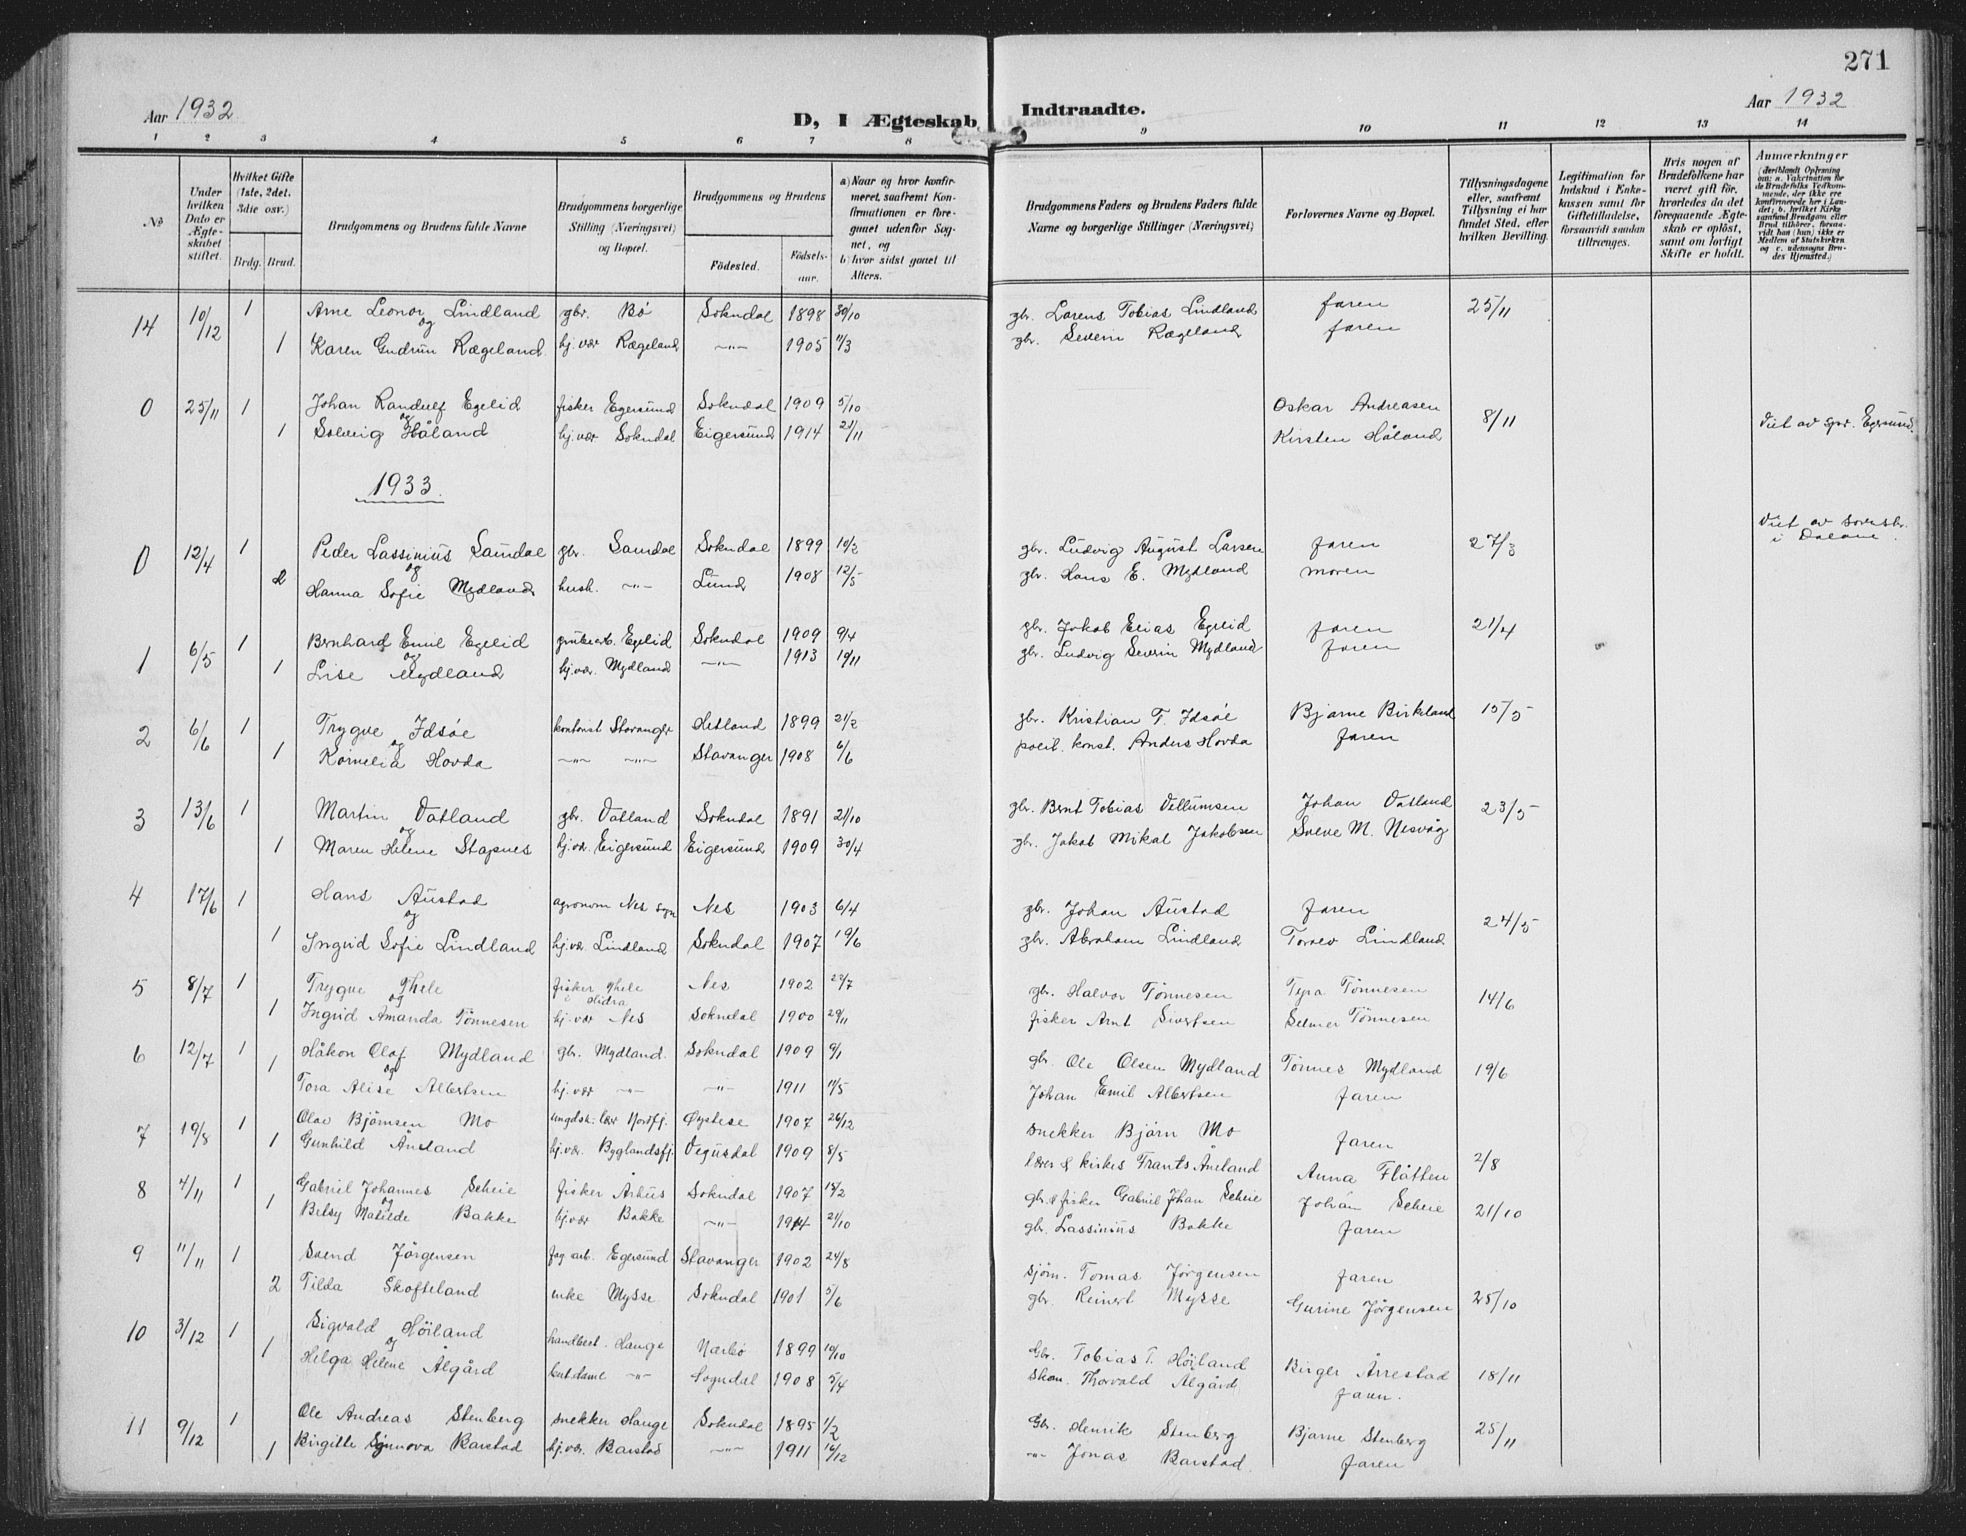 271
Aar 1932
D, I Ægteskab Indtraadte.
Aar 1932
1 2 3 4 5 6 7 8 9 10 11 12 13 14
No
Under hvilken Dato er Ægteskabet stiftet.
Hvilket Gifte (1ste, 2det, 3die osv.)
Brdg. Brud.
Brudgommens og Brudens fulde Navne
Brudgommens borgerlige Stilling (Næringsvei) og Bopæl.
Brudgommens og Brudens
Fødested. Fødselsaar.
a) Naar og hvor konfirmeret, saafremt Konfirmationen er foregaaet udenfor Sognet, og
b) hvor sidst gaaet til Alters.
Brudgommens Faders og Brudens Faders fulde Navne og borgerlige Stillinger (Næringsvei)
Forlovernes Navne og Bopæl.
Tillysningsdagene eller, saafremt Tillysning ei har fundet Sted, efter hvilken Bevilling.
Legitimation for Indskud i Enkekassen samt for Giftetilladelse, forsaavidt saadan tiltrænges.
Hvis nogen af Brudefolkene har været gift før, hvorledes da det foregaaende Ægteskab er opløst, samt om lovligt Skifte er holdt.
Anmærkninger
14 10/12 1 Arne Leonor Lindland gbr. Bø Sokndal 1898 30/10 gbr. Larens Tobias Lindland faren 25/11
og
1 Karen Gudrun Rægeland hj. vær Rægeland —"— 1905 11/3 gbr. Severin Rægeland faren
0 25/11 1 Johan Randulf Egelid fisker Egersund Sokndal 1909 5/10 Oskar Andreasen 8/11
og
1 Solveig Håland hj. vær Sokndal Eigersund 1914 21/11 Kirsten Håland Viet av spr. Egersund.
1933.
0 12/4 1 Peder Lassinius Sandal gbr. Sandal Sokndal 1899 10/2 gbr. Ludvig August Larsen faren 27/3 Viet av sorenskr. i Dalane.
og
2 Hanna Sofie Mydland hush. —"— Lund 1908 12/5 gbr. Hans E. Mydland moren
1 6/5 1 Bernhard Emil Egelid grubearb. Egelid Sokndal 1909 9/4 gbr. Jakob Elias Egelid faren 21/4
og
1 Lise Mydland hj. vær. Mydland —"— 1913 19/11 gbr. Ludvig Severin Mydland faren
2 6/6 1 Trygve Idsøe kontorist Stavanger Hetland 1899 21/2 gbr. Kristian T. Idsøe Bjarne Birkeland 15/5
og
1 Kornelia Hovda —"— —"— Stavanger 1908 6/6 polit. konst. Anders Hovda faren
3 13/6 1 Martin Vatland gbr. Vatland Sokndal 1891 21/10 gbr. Bernt Tobias Vellumsen Johan Vatland 23/5
og
1 Maren Helene Stapnes hj. vær. Eigersund Eigersund 1909 30/4 gbr. Jakob Mikal Jakobsen Svene M. Nesvåg
4 17/6 1 Hans Austad agronom Nes sogn Nes 1903 6/4 gbr. Johan Austad faren 24/5
og
1 Ingrid Sofie Lindland hj. vær. Lindland Sokndal 1907 19/6 gbr. Abraham Lindland Torlev Lindland
5 8/7 1 Trygve Thele fisker Thele i Hidra Nes 1902 23/7 gbr. Halvor Tønnesen Tyra Tønnesen 14/6
og
1 Ingrid Amanda Tønnesen hj. vær Nes Sokndal 1900 29/11 fisker Arnt Sivertsen Selmer Tønnesen
6 12/7 1 Håkon Olaf Mydland gbr. Mydland. Sokndal 1909 9/1 gbr. Ole Olsen Mydland Tønnes Mydland 19/6
og
1 Tora Alise Albertsen hj. vær —"— —"— 1911 11/5 Johan Emil Albertsen faren
7 19/8 1 Olav Bjørnsen Mo ungdsk. lær Nordfj. Øystese 1907 26/12 snekker Bjørn Mo faren 2/8
1 Gunhild Åneland hj. vær. Byglandsfj. Vegusdal 1909 8/5 lærer & kirkes. Frants Åneland Anna Flåtten
8 4/11 1 Gabriel Johannes Scheie fisker Århus Sokndal 1907 18/2 gbr. & fisker Gabriel Johan Scheie Johan Scheie 21/10
og
1 Betsy Matilde Bakke hj. vær Bakke —"— 1914 21/10 gbr. Lassinius Bakke faren
9 11/11 1 Svend Jørgensen fag arb. Egersund Stavanger 1902 24/8 sjøm. Tomas Jørgensen faren 25/10
2 Tilda Skofteland enke Mysse Sokndal 1901 5/6 gbr. Reinert Mysse Gurine Jørgensen
10 3/12 1 Sigvald Höiland handbest. Hauge Nærbø 1899 19/10 Gbr. Tobias T. Höiland Birger Årrestad 18/11
og
1 Helga Helene Ålgård but. dame —"— Sogndal 1908 5/4 Skom. Thorvald Ålgård faren.
11 9/12 1 Ole Andreas Stenberg snekker Hauge Sokndal 1895 1/2 Gbr. Henrik Stenberg Bjarne Stenberg 25/11
1 Birgitte Synnova Barstad hj. vær. Barstad —"— 1911 16/12 —"— Jonas Barstad faren